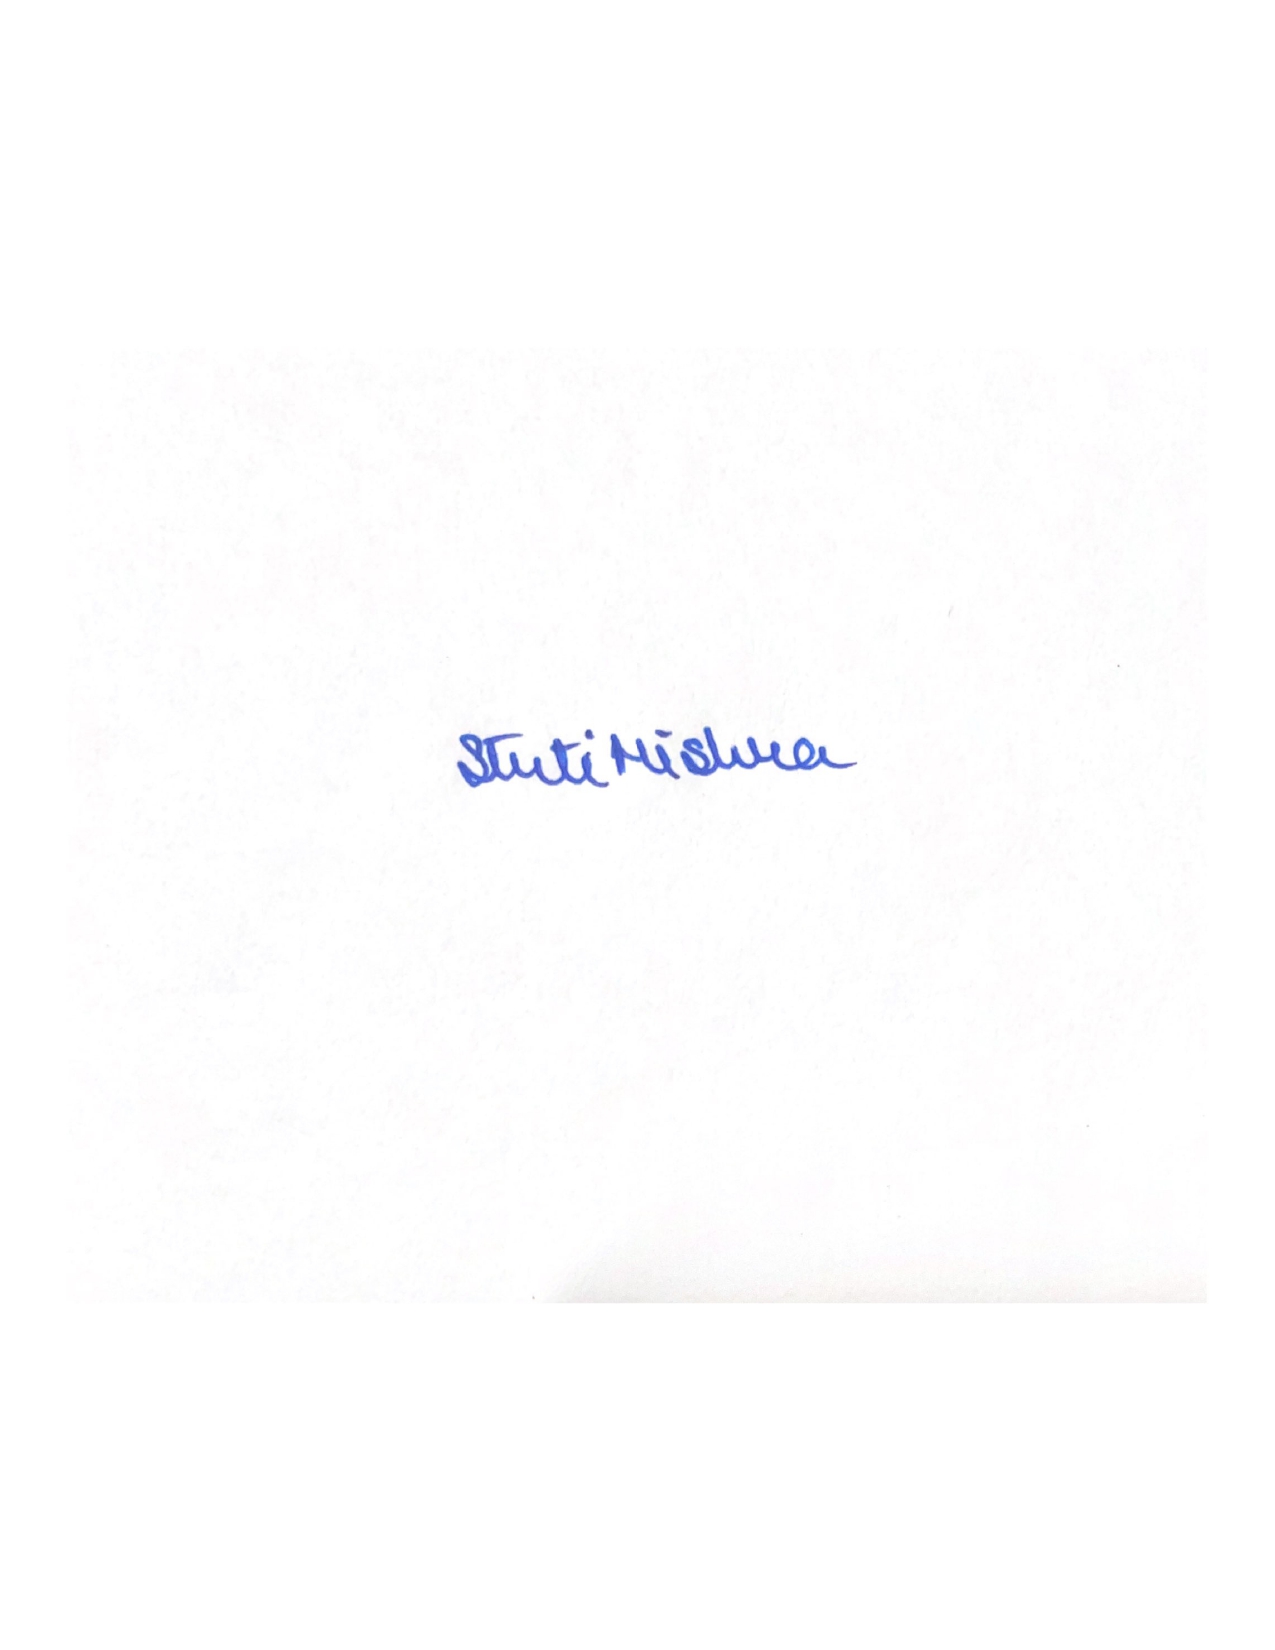 Stuti Mishra